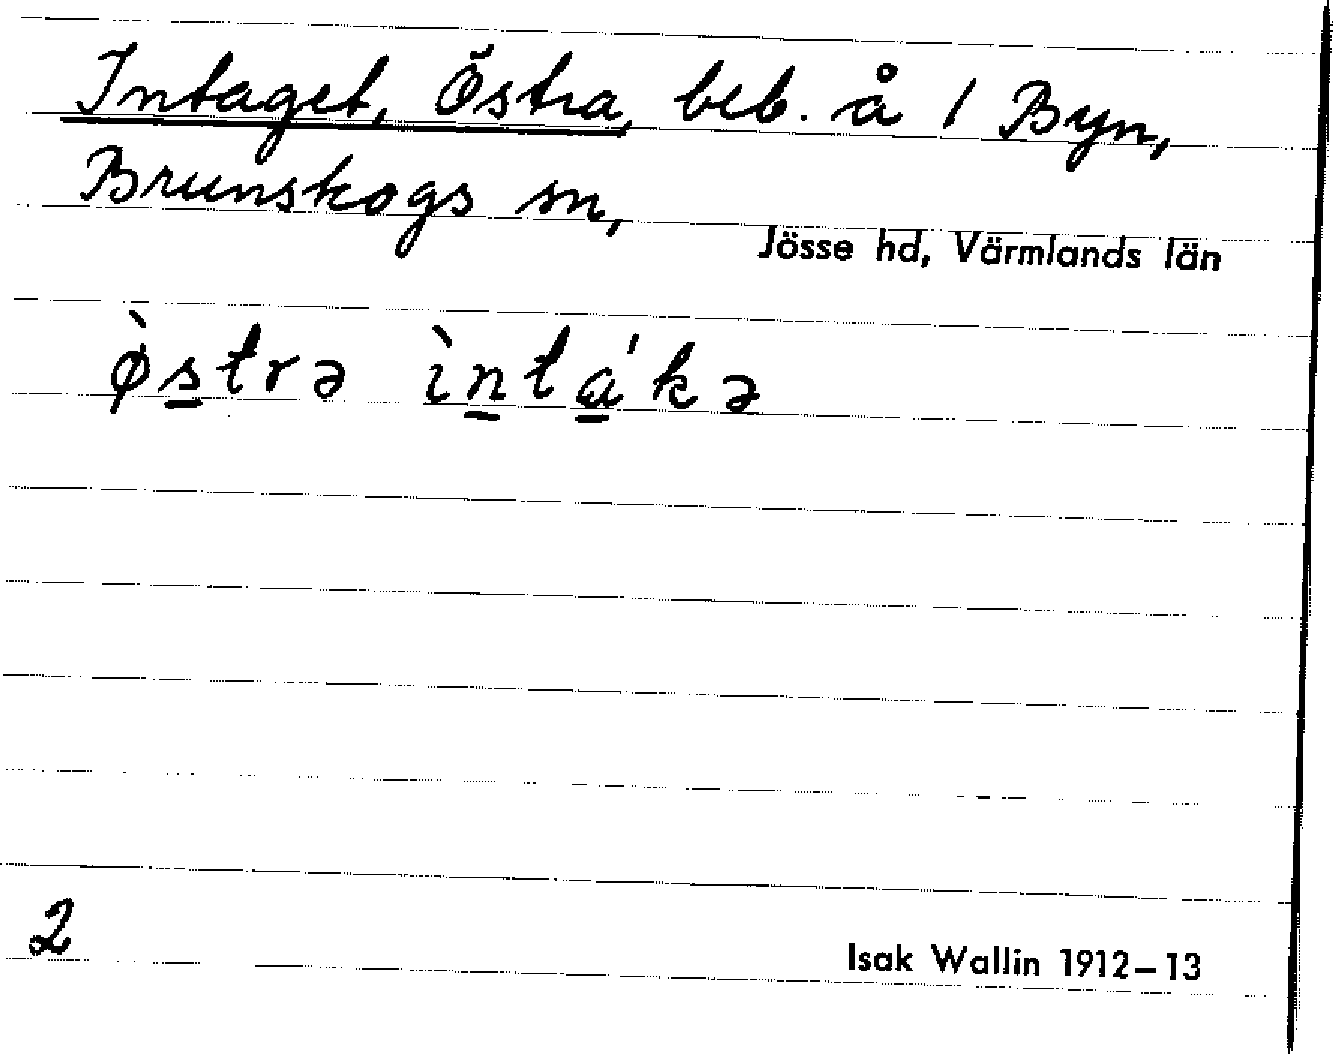 Intaget, Östra, beb. å 1 Byn,
Brunskogs sn,
Jösse hd, Värmlands län
ø̀s̲trə ìn̲tá̲kə
2
Isak Wallin 1912–13